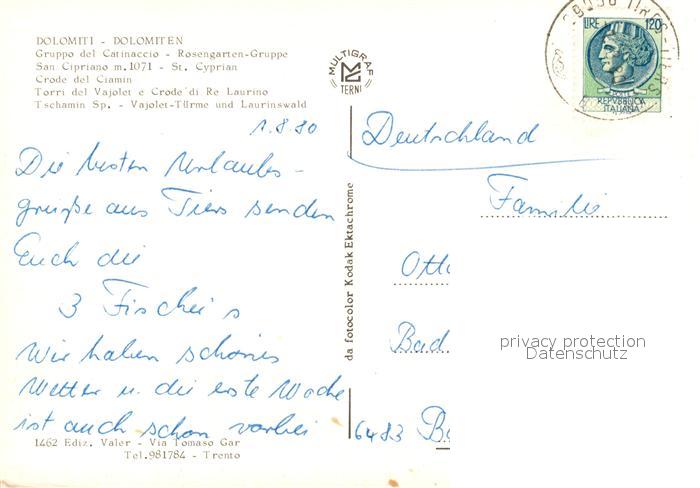 DOLOMITI - DOLOMITEN
Gruppo del Catinaccio - Rosengarten-Gruppe
San Cipriano m. 1071 - St. Cyprian
Crode del Ciamin
Torri del Vajolet e Crode di Re Laurino
Tschamin Sp. - Vajolet-Türme und Laurinswald
1.8.80
Die besten Urlaubs-
grüße aus Tiers senden
Euch die
3 Fischer's
Wir haben schönes
Wetter u. die erste Woche
ist auch schon vorbei
1462 Ediz. Valer - Via Tomaso Gar
Tel. 981784 - Trento
MULTIGRAF
TERNI
da fotocolor Kodak Ektachrome
LIRE 120
REPVBBLICA
ITALIANA
Deutschland
Familie
Otto
Bad
6483
privacy protection
Datenschutz